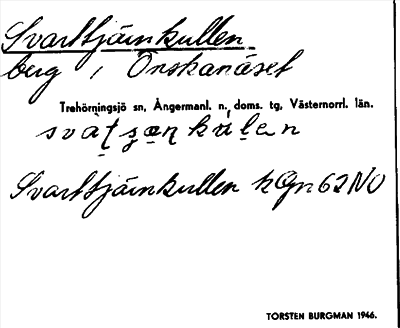 Svarttjärnkullen
berg i Önskanäset
Trehörningsjö sn, Ångermanl. n. doms. tg, Västernorrl. län.
Svarttjärnkullen kGn62NO
TORSTEN BURGMAN 1946.